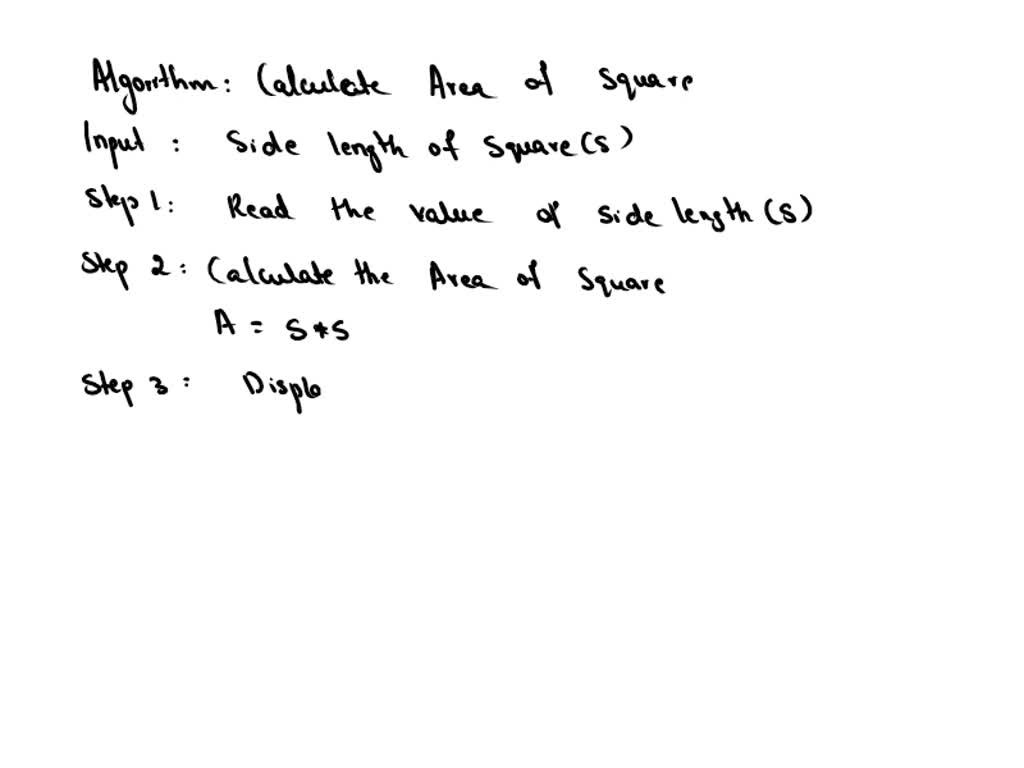 Algorithm: Calculate Area of Square
Input : Side length of Square (s)
Step 1: Read the value of side length (s)
Step 2: Calculate the Area of Square
A = s*s
Step 3: Displa